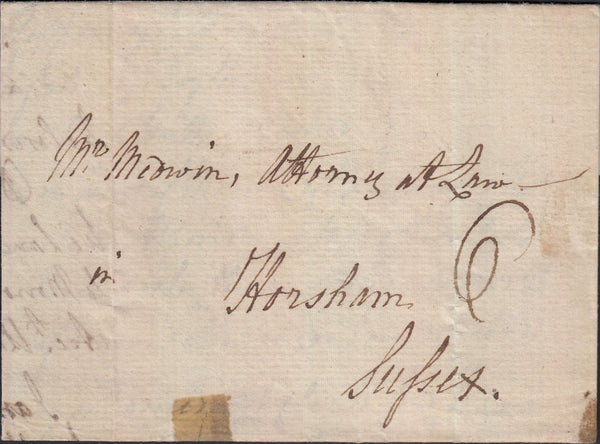 Mr Medwin, Attorney at Law
in Horsham 6
Sussex.